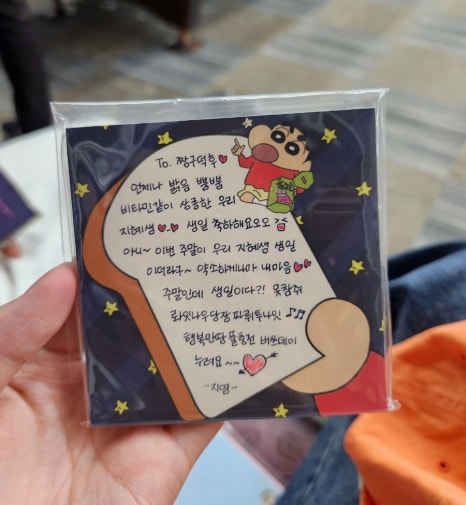 To. 짱구덕후♥
언제나 밝음 뿜뿜
비타민같이 상큼한 우리
지혜쌤 ♥.♥ 생일 축하해요오오
아니~ 이번 주말이 우리 지혜쌤 생일
이더라구~ 약소하게나마 내마음♥♥
주말인데 생일이다?! 못참쥐
롸잇나우 당장 파뤼투나잇 ♪♫
행복만땅 풀충전 버쓰데이
누려요~~
-지영-